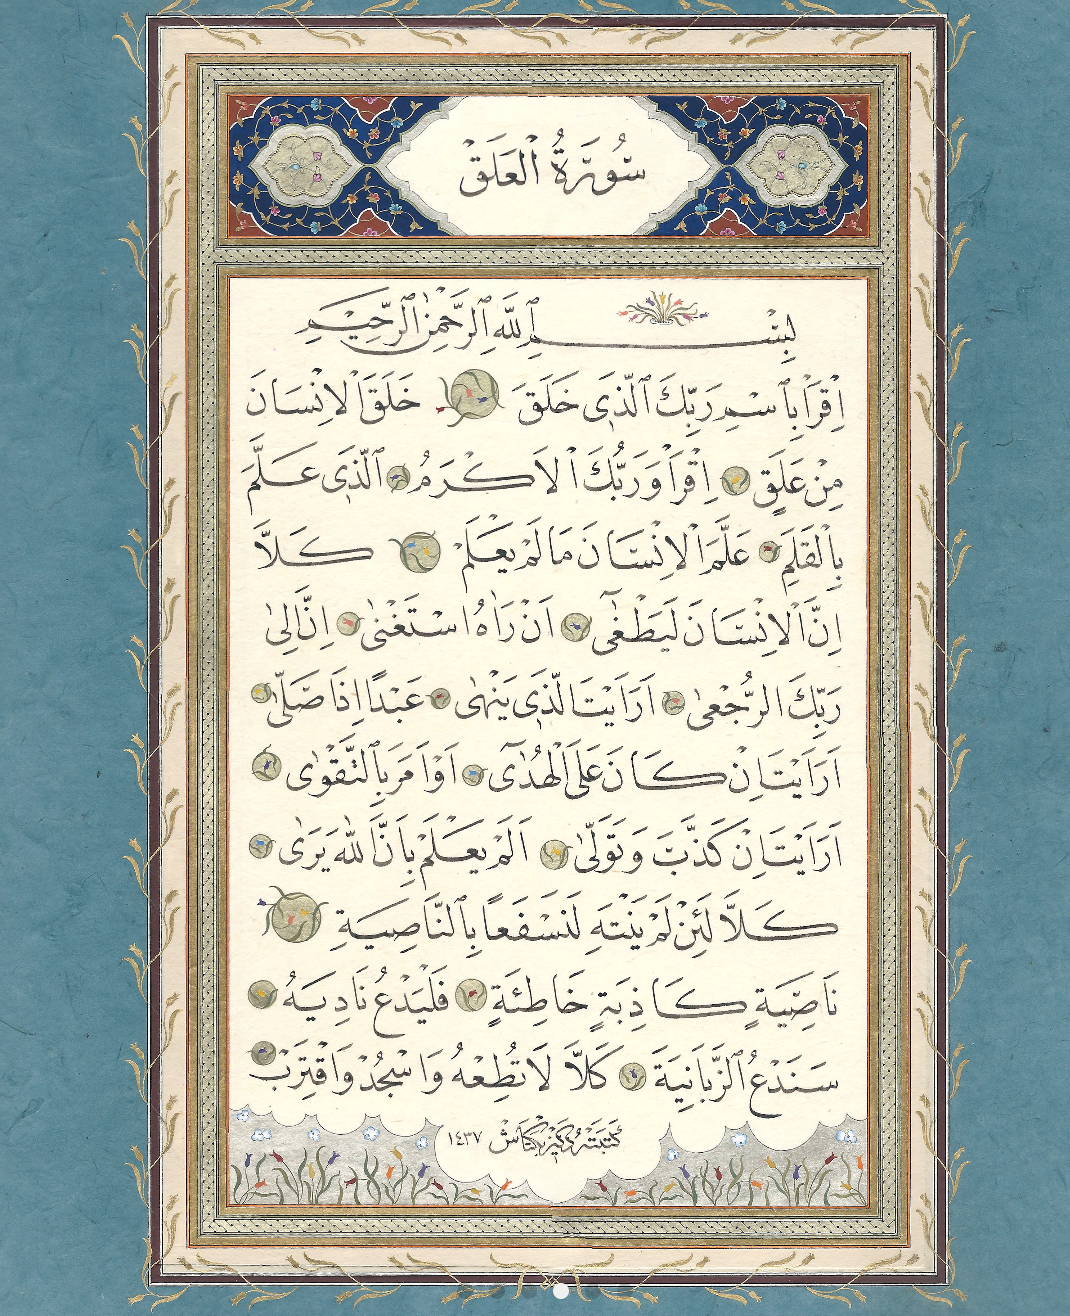 سُورَةُ الْعَلَقْ
بِسْمِ ٱللَّهِ ٱلرَّحْمٰنِ ٱلرَّحِيمِ
اِقْرَأْ بِٱسْمِ رَبِّكَ ٱلَّذِى خَلَقَ خَلَقَ الْاِنْسَانَ
مِنْ عَلَقٍ اِقْرَأْ وَرَبُّكَ الْاَكْرَمُ ٱلَّذِى عَلَّمَ
بِالْقَلَمِ عَلَّمَ الْاِنْسَانَ مَا لَمْ يَعْلَمْ كَلَّا
اِنَّ الْاِنْسَانَ لَيَطْغٰٓى اَنْ رَاٰهُ اسْتَغْنٰى اِنَّ اِلٰى
رَبِّكَ الرُّجْعٰى اَرَاَيْتَ الَّذِى يَنْهٰى عَبْدًا اِذَا صَلّٰى
اَرَاَيْتَ اِنْ كَانَ عَلَى الْهُدٰٓى اَوْ اَمَرَ بِالتَّقْوٰى
اَرَاَيْتَ اِنْ كَذَّبَ وَتَوَلّٰى اَلَمْ يَعْلَمْ بِاَنَّ اللّٰهَ يَرٰى
كَلَّا لَئِنْ لَمْ يَنْتَهِ لَنَسْفَعًا بِالنَّاصِيَةِ
نَاصِيَةٍ كَاذِبَةٍ خَاطِئَةٍ فَلْيَدْعُ نَادِيَهُ
سَنَدْعُ ٱلزَّبَانِيَةَ كَلَّا لَا تُطِعْهُ وَاسْجُدْ وَاقْتَرِبْ
كَتَبَتْهُ ١٤٣٧